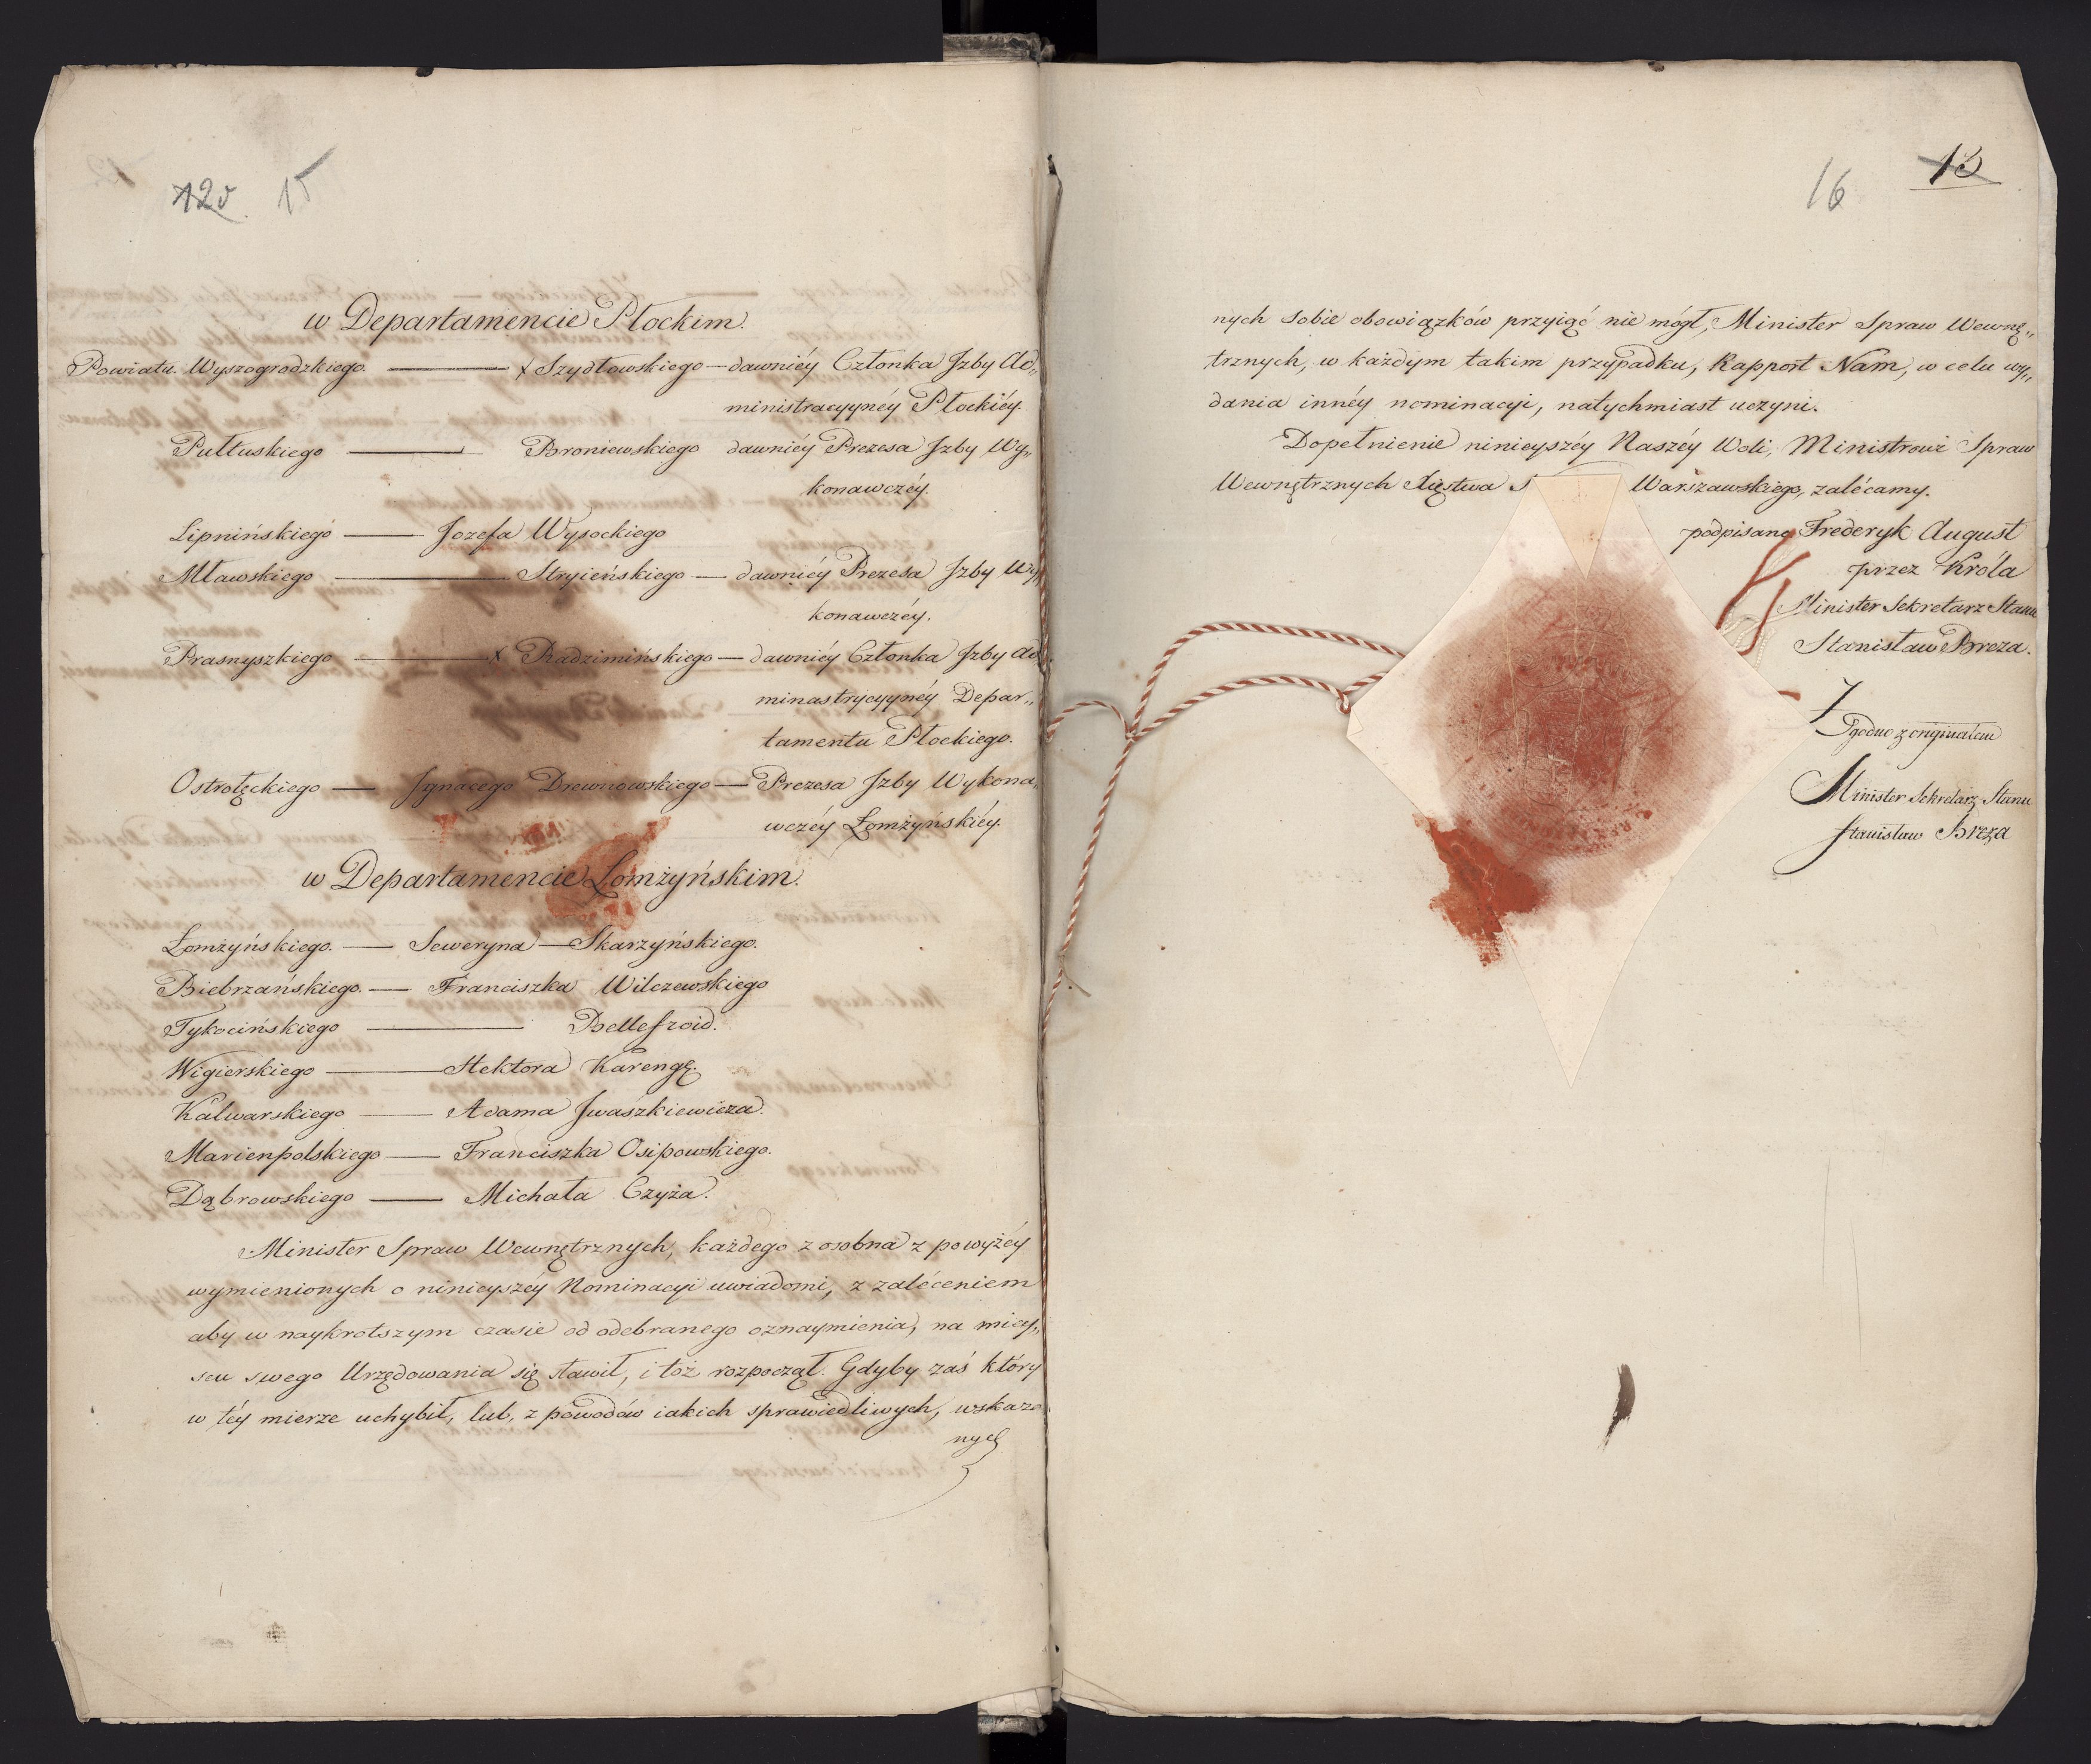 12v. 15
w Departamencie Płockim.
Powiatu Wyszogrodzkiego. — x Szydłowskiego — dawniéy Członka Jzby Ad„
ministracyynéy Płockiéy.
Pułtuskiego — Broniewskiego dawniéy Prezesa Jzby Wy„
konawczéy.
Lipnińskiego — Jozefa Wysockiego
Mławskiego — Stryieńskiego — dawniéy Prezesa Jzby Wy„
konawczéy.
Prasnyszkiego — x Radzimińskiego — dawniéy Członka Jzby Ad„
minastrycyynéy Depar„
tamentu Płockiego.
Ostrołęckiego — Jgnacego Drewnowskiego — Prezesa Jzby Wykona„
wczéy Łomżyńskiéy.
w Departamencie Łomżyńskim.
Łomżyńskiego. — Seweryna — Skarzyńskiego.
Biebrzańskiego. — Franciszka Wilczewskiego
Tykocińskiego — Bellefroid.
Wigierskiego — Hektora Karengę.
Kalwarskiego — Adama Jwaszkiewicza.
Marienpolskiego — Franciszka Osipowskiego.
Dąbrowskiego — Michała Czyża.
Minister Spraw Wewnętrznych, każdego z osobna z powyżéy
wymienionych o ninieyszéy Nominacyi uwiadomi, z zaléceniem
aby w naykrotszym czasie od odebranego oznaymienia, na miey„
scu swego Urzędowania się stawił, i toż rozpoczął. Gdyby zaś który
w téy mierze uchybił, lub, z powodów iakich sprawiedliwych, wskaza„
nych
16 13
nych sobie obowiązków przyiąć nie mógł, Minister Spraw Wewnę„
trznych, w każdym takim przypadku, Rapport Nam, w celu wy„
dania innéy nominacyi, natychmiast uczyni.
Dopełnienie ninieyszéy Naszéy Woli, Ministrowi Spraw
Wewnętrznych Xięstwa Warszawskiego, zalécamy.
podpisano Frederyk August
przez Króla
Minister Sekretarz Stanu
Stanisław Breza.
Zgodno z originałem
Minister Sekretarz Stanu
Stanisław Breza